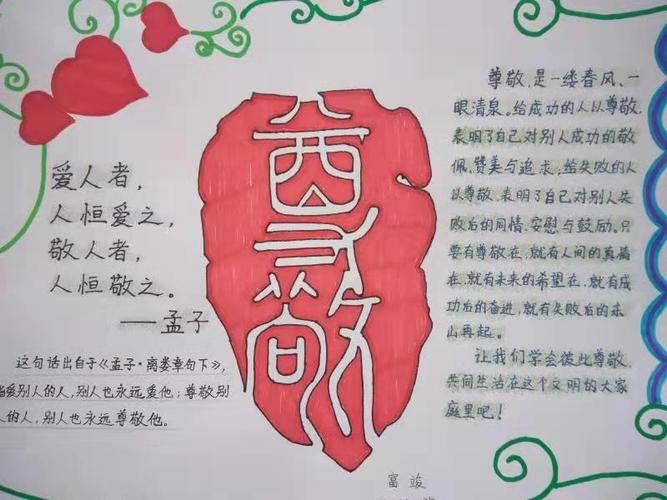 爱人者，
人恒爱之，
敬人者，
人恒敬之。
——孟子
这句话出自于《孟子·离娄章句下》，
爱别人的人，别人也永远爱他；尊敬别
人的人，别人也永远尊敬他。
尊敬
尊敬，是一缕春风、一
眼清泉。给成功的人以尊敬，
表明了自己对别人成功的敬
佩、赞美与追求；给失败的人
以尊敬，表明了自己对别人失
败后的同情、安慰与鼓励。只
要有尊敬在，就有人间的真情
在，就有未来的希望在，就有成
功后的奋进，就有失败后的东
山再起。
让我们学会彼此尊敬，
共同生活在这个文明的大家
庭里吧！
富竣